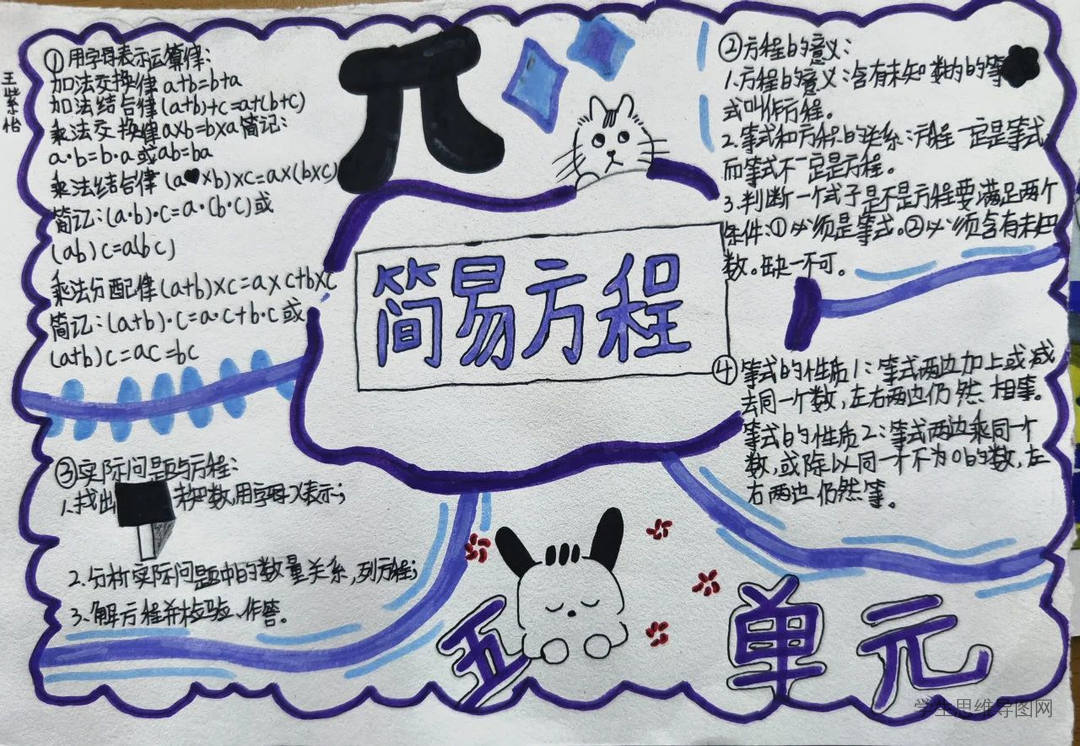 王紫怡
①用字母表示运算律:
加法交换律 a+b=b+a
加法结合律 (a+b)+c=a+(b+c)
乘法交换律 a×b=b×a 简记:
a·b=b·a 或ab=ba
乘法结合律 (a×b)×c=a×(b×c)
简记:(a·b)·c=a·(b·c)或
(ab)c=a(bc)
乘法分配律 (a+b)×c=a×c+b×c
简记:(a+b)·c=a·c+b·c 或
(a+b)c=ac=bc
②方程的意义:
1.方程的意义:含有未知数的等
式叫作方程。
2.等式和方程的关系:方程一定是等式,
而等式不一定是方程。
3.判断一个式子是不是方程要满足两个
条件:①必须是等式。②必须含有未知
数。缺一不可。
简易方程
③实际问题与方程:
1.找出未知数,用字母x表示;
2.分析实际问题中的数量关系,列方程;
3.解方程并检验、作答。
④等式的性质1:等式两边加上或减
去同一个数,左右两边仍然相等。
等式的性质2:等式两边乘同一个
数,或除以同一个不为0的数,左
右两边仍然等。
五单元
学生思维导图网